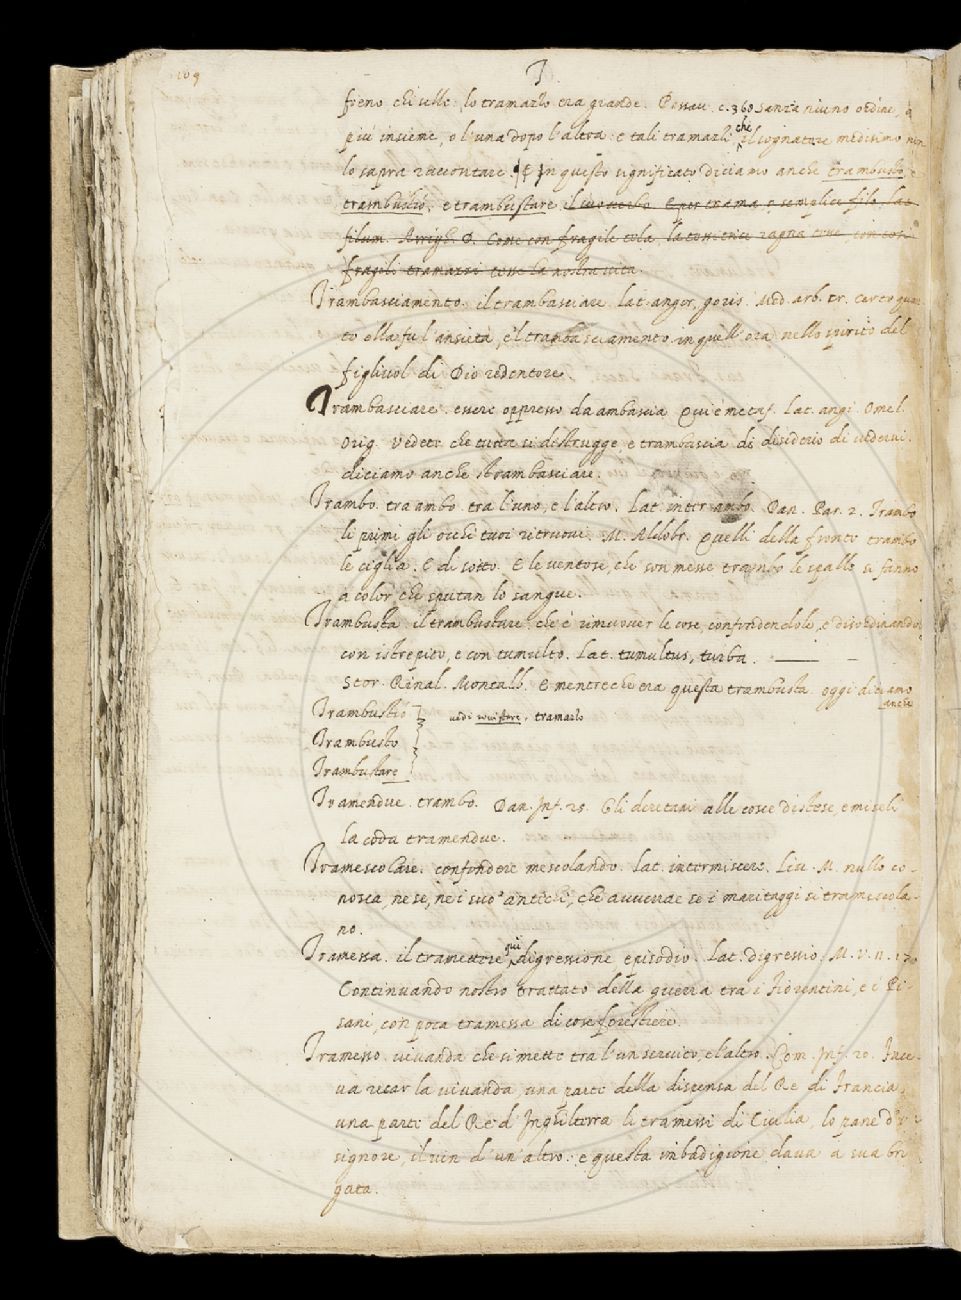 109
T
freno chi volle, lo tramazzo era grande. Passav. c. 360 senza niuno ordine, o
più insieme, o l'una dopo l'altra: e tali tramazzi che il sognatore medesimo non
lo saprà raccontare. E in questo significato diciamo anche trambusto, e
trambustio. e trambustare il suo verbo. E per trama, o semplice filo, lat.
filum. Arrigh. D. Come con fragile tela la tessitrice ragna tesse, con così
fragili tramazzi tesse la nostra vita.
Trambasciamento. il trambasciare. lat. angor, goris. Med. arb. cr. Cerco quan-
to ella fu l'ansietà, e 'l trambasciamento in quell'ora nello spirito del
figliuol di Dio redentore.
Trambasciare. essere oppresso da ambascia qui è metaf. Lat. angi. Omel.
Orig. Vedete che tutta si distrugge, e trambascia di disiderio di vedervi.
diciamo anche strambasciare.
Trambo. tra ambo. tra l'uno, e l'altro. Lat. inter ambo. Dan. Par. 2. Trambo
li primi gli occhi tuoi ritruovi. M. Aldobr. Quelli della fronte trambo
le ciglia. E di sotto. E le ventose, che son messe trambo le spalle si fanno
a color, che sputan lo sangue.
Trambusta. il trambustare. che è rimuover le cose, confondendole, e disordinandole
con istrepito, e con tumulto. Lat. tumultus, turba.
Stor. Rinal. Montalb. E mentre che era questa trambusta. oggi diciamo
anche
Trambustio
vedi tramazzo
Trambusto
Trambustare
Tramendue. trambo. Dan. Inf. 25. Gli deretani alle cosce distese, e miseli
la coda tramendue.
Tramescolare. confondere mescolando. Lat. intermiscere. Liv. M. nullo co-
nosca, ne se, ne i suoi antichi, che avvenae se i maritaggi si tramescola-
no.
Tramessa. il tramettere qui digressione episodio. Lat. digressio. M. V. n. 170
Continuando nostro trattato della guerra tra i Fiorentini, e i Pi-
sani, con poca tramessa di cose forestiere.
Tramesso. vivanda che si mette tra l'un servito, e l'altro. Com. Inf. 20. Face-
va recar la vivanda, una parte della dispensa del Re di Francia,
una parte del Re d'Inghilterra li tramessi di Cicilia, lo pane d'un
signore, il vin d'un altro: e questa imbadigione dava a sua bri
gata.